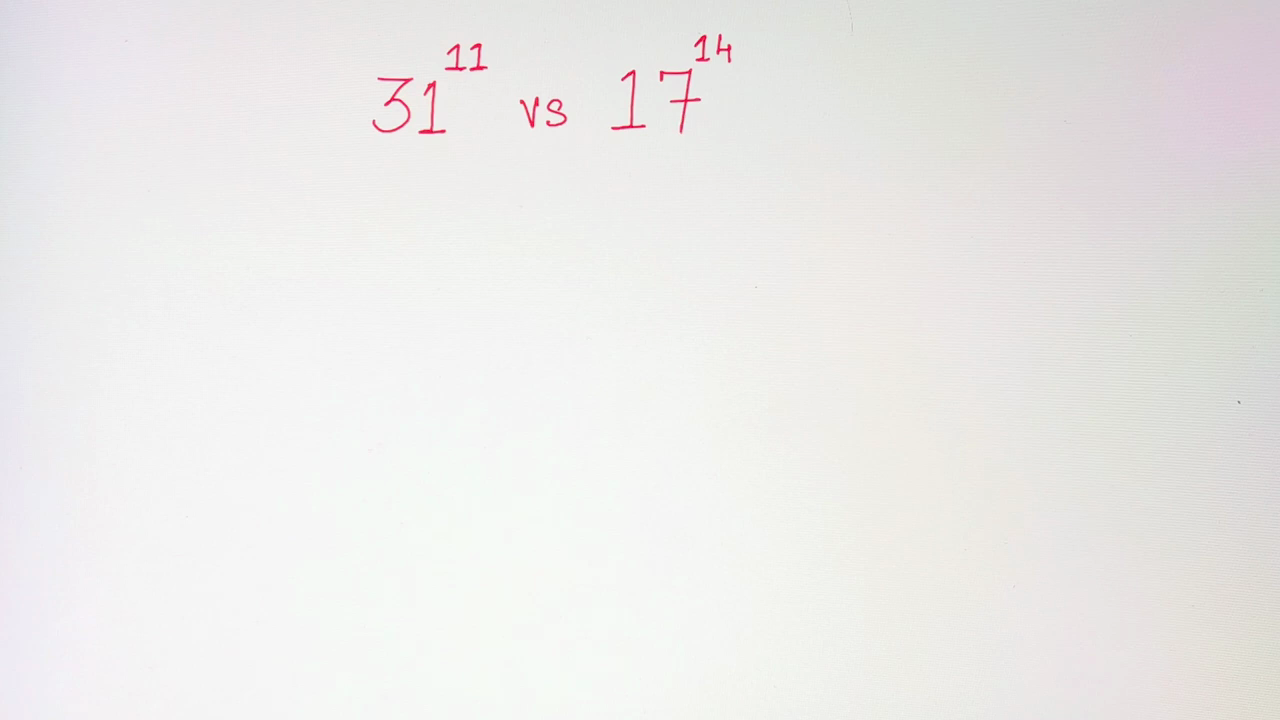 31^11 vs 17^14